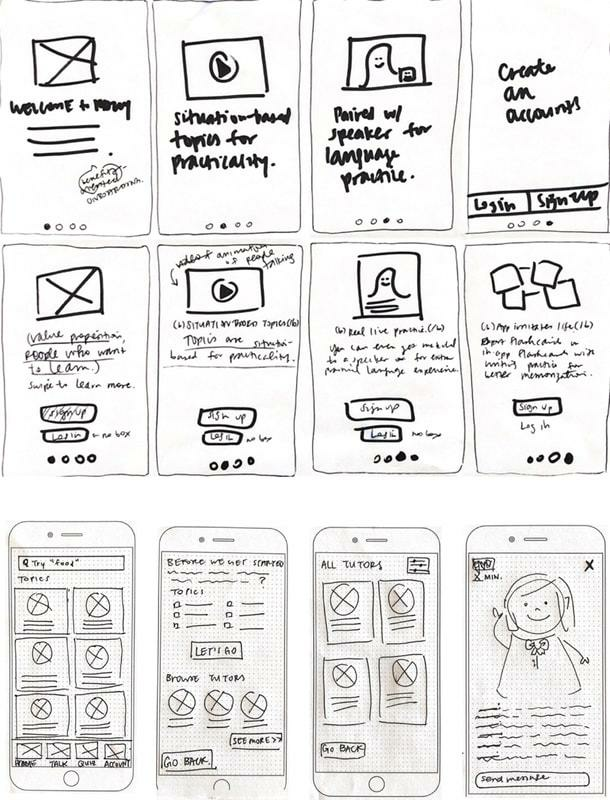 WELCOME to
benefits-
oriented
ONBOARDING.
Situation-based
topics for
practicality.
Paired w/
speaker for
language
practice.
Create
an
accounts
Log in
Sign Up
(value proposition,
people who want
to learn.)
Swipe to learn more.
Sign up
Log in
no box
video + animation
of people
talking
(b) SITUATION-BASED TOPICS (/b)
Topics are situation-
based for practicality.
sign up
Log in
no box
(b) Real live practice. (/b)
You can even get matched
to a speaker for extra
language experience.
Sign up
Log in
no box
(b) App imitates life (/b)
Flashcards
in app Flashcards with
practice for
better memorization.
Sign up
Log in
Try "food"
TOPICS
TALK
QUIZ
ACCOUNT
BEFORE WE GET STARTED
?
TOPICS
LET'S GO
BROWSE TUTORS
SEE MORE >>
GO BACK
ALL TUTORS
GO BACK
X MIN.
X
Send message